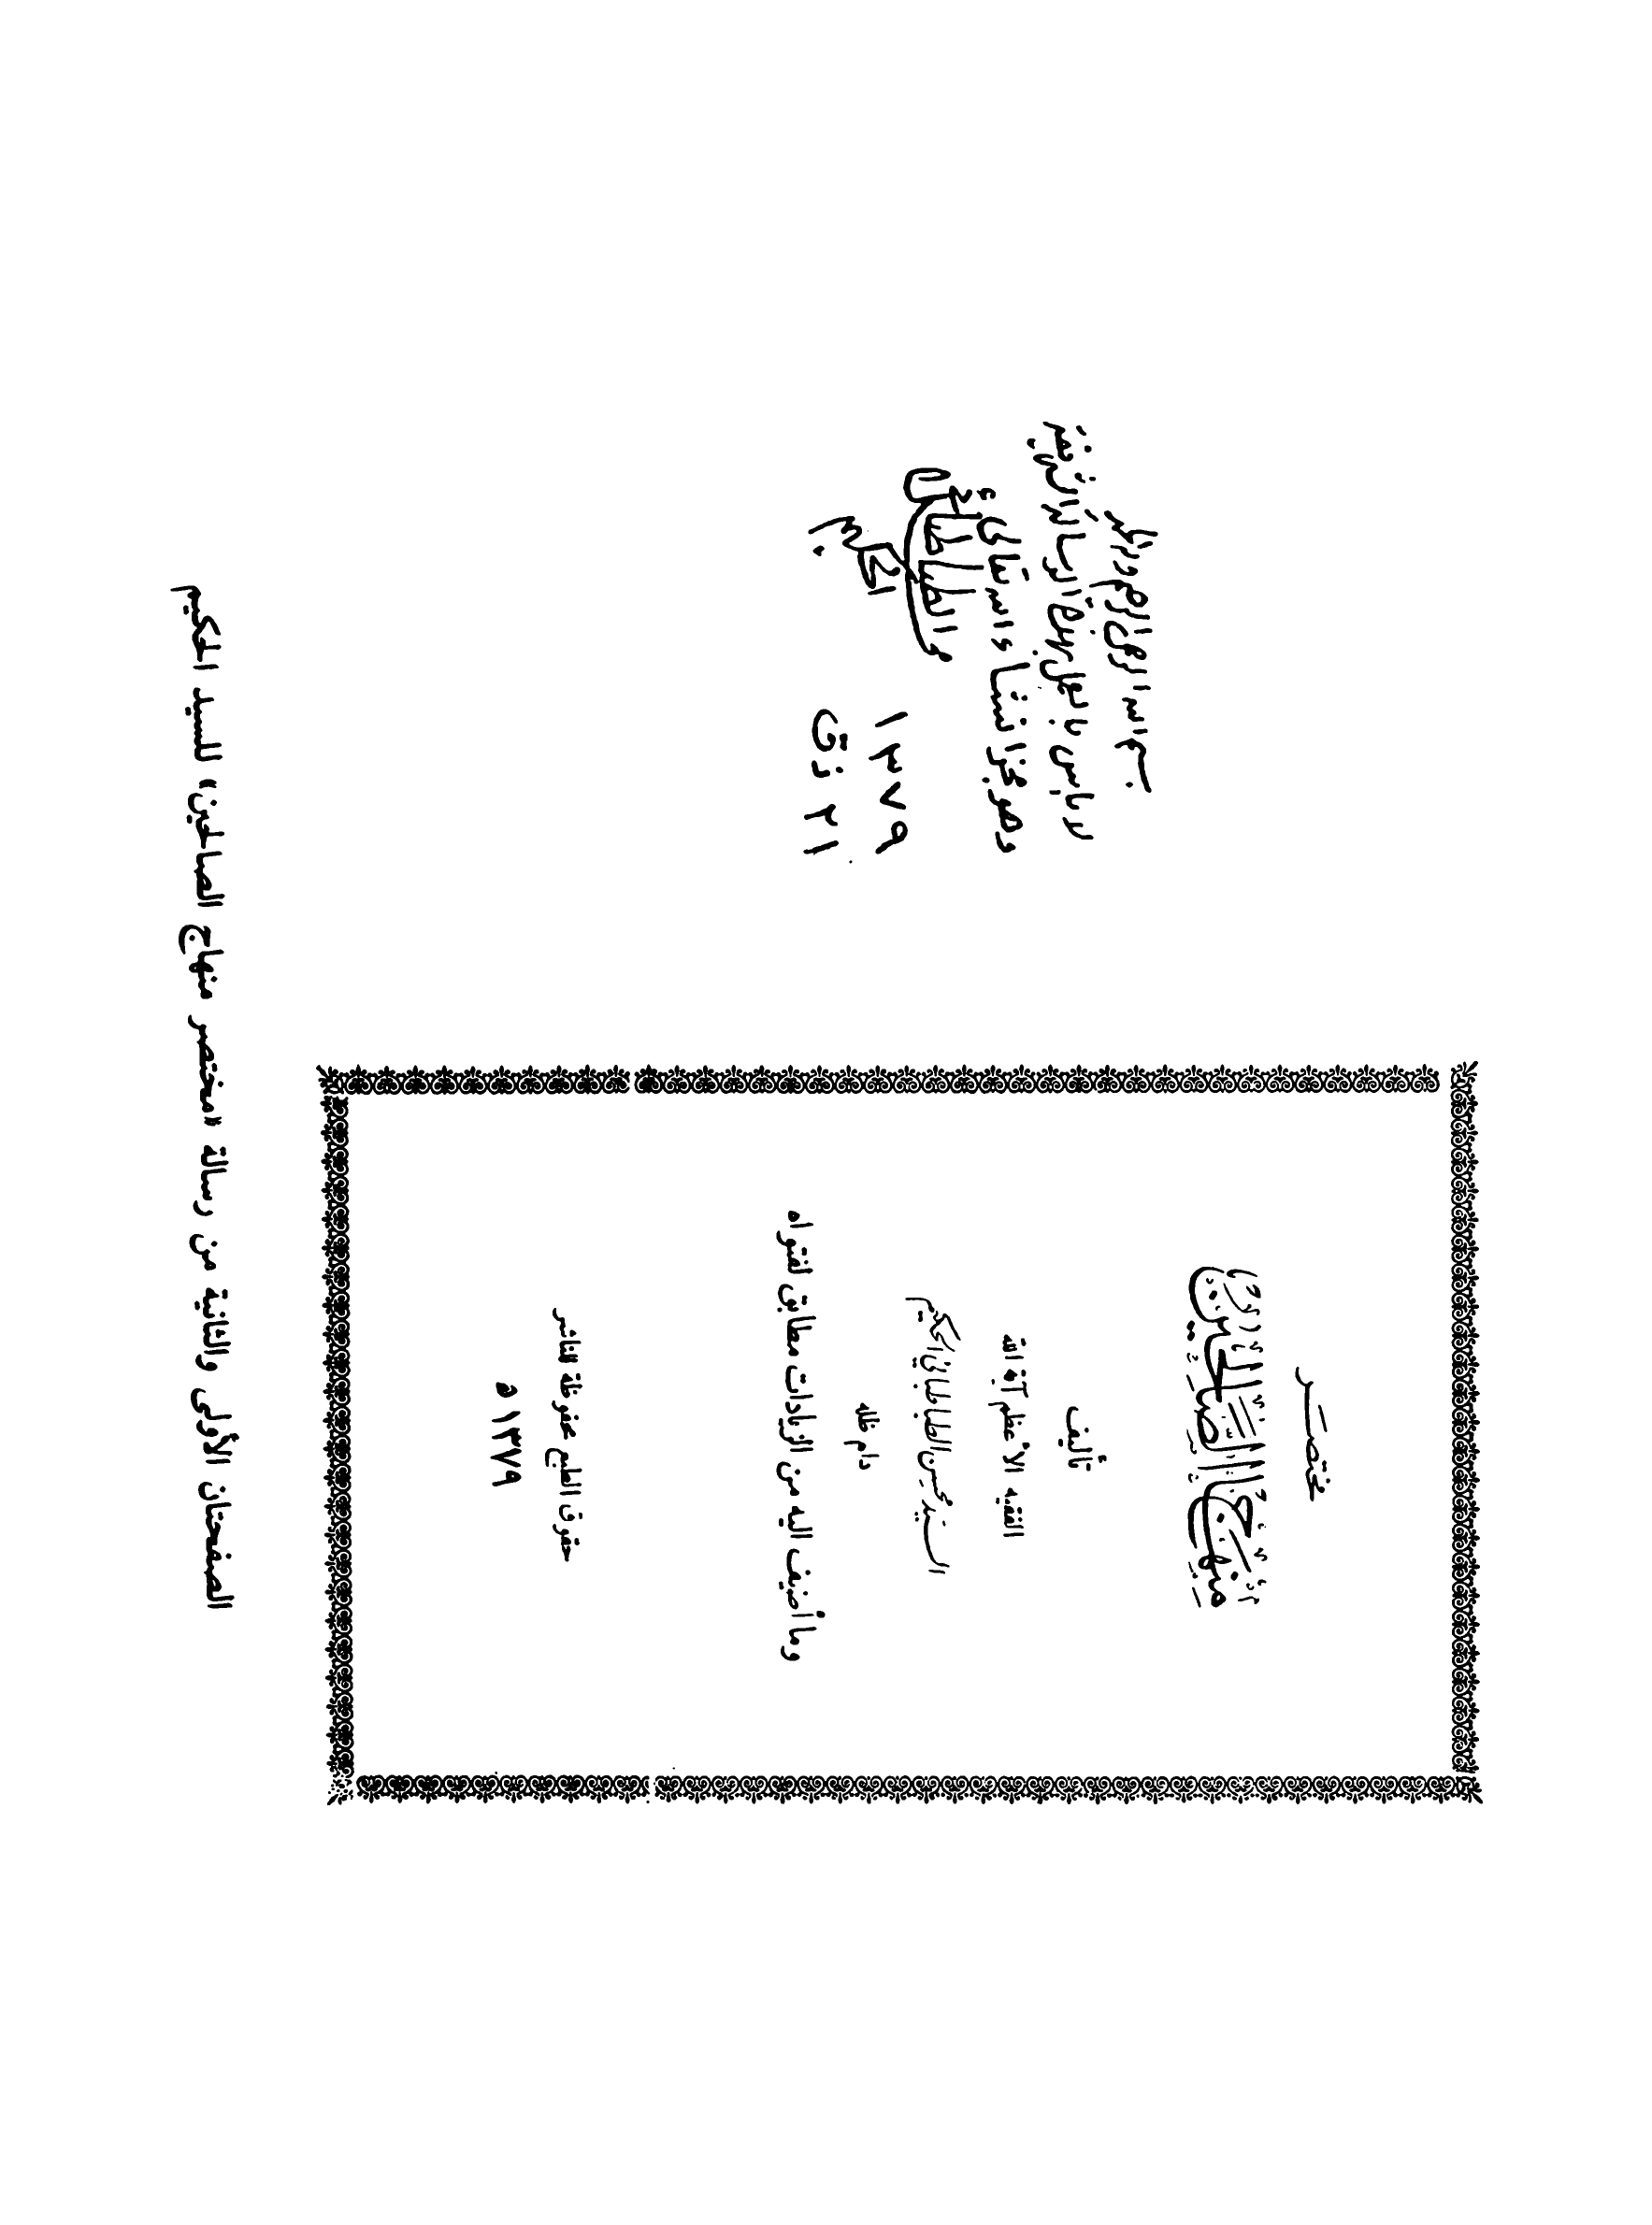 مختصر
منهاج الصالحين
تأليف
الفقيه الأعظم آية الله
السيد محسن الطباطبائي الحكيم
دام ظله
وما أضيف اليه من الزيادات مطابق لفتواه
حقوق الطبع محفوظة للناشر
١٣٧٩ ه
بسم الله الرحمن الرحيم وله الحمد
لا بأس بالعمل بهذه الرسالة الشريفة
وهو مجز انشاء الله تعالى
الطباطبائي
الحكيم
١٣٧٩
٢١ ذق
الصفحتان الأولى والثانية من رسالة «مختصر منهاج الصالحين» للسيد الحكيم